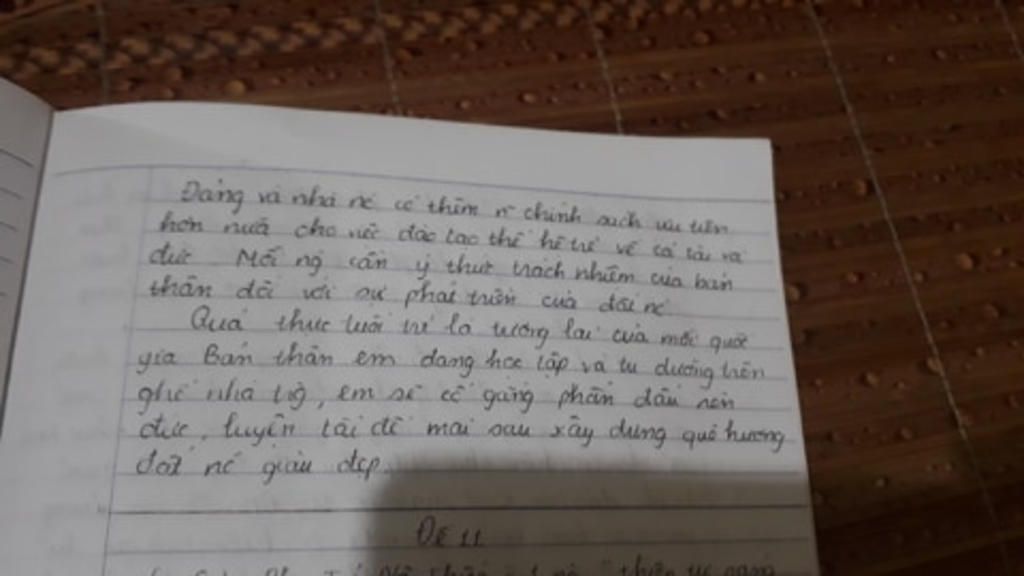 Đảng và nhà nc có thêm n~ chính sách ưu tiên
hơn nữa cho việc đào tạo thế hệ trẻ về cả tài và
đức. Mỗi ng cần ý thức trách nhiệm của bản
thân đối với sự phát triển của đất nc
Quả thực tuổi trẻ là tương lai của mỗi quốc
gia Bản thân em đang học tập và tu dưỡng trên
ghế nhà trg, em sẽ cố gắng phấn đấu rèn
đức, luyện tài để mai sau xây dựng quê hương
đất nc giàu đẹp
Đề 11